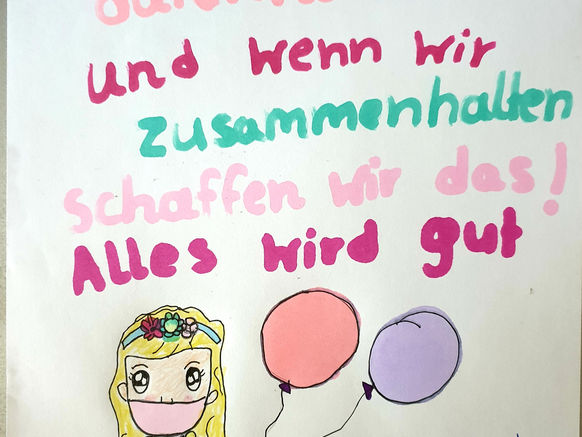 und wenn wir
zusammenhalten
schaffen wir das!
Alles wird gut